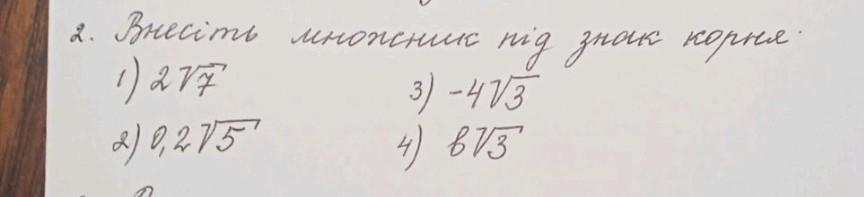 2. Внесіть множник під знак кореня.
1) 2√7
3) -4√3
2) 0,2√5
4) в√3